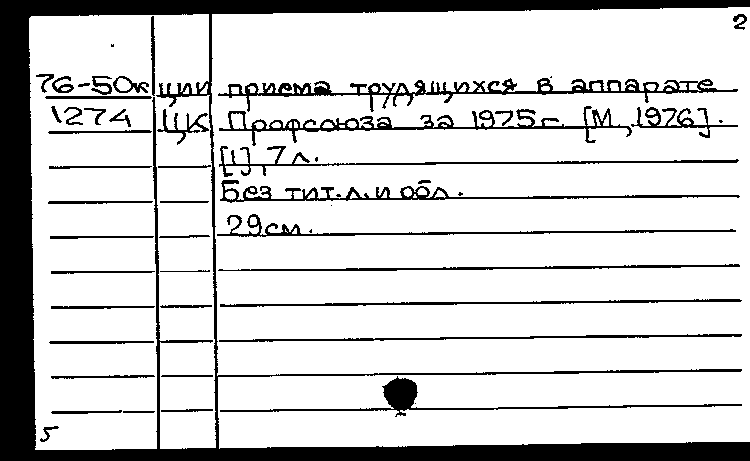 2
76-50к ции приема трудящихся в аппарате
1274 ЦК Профсоюза за 1975г. [М.,1976].
[1],7 л.
Без тит.л.и обл.
29см.
5